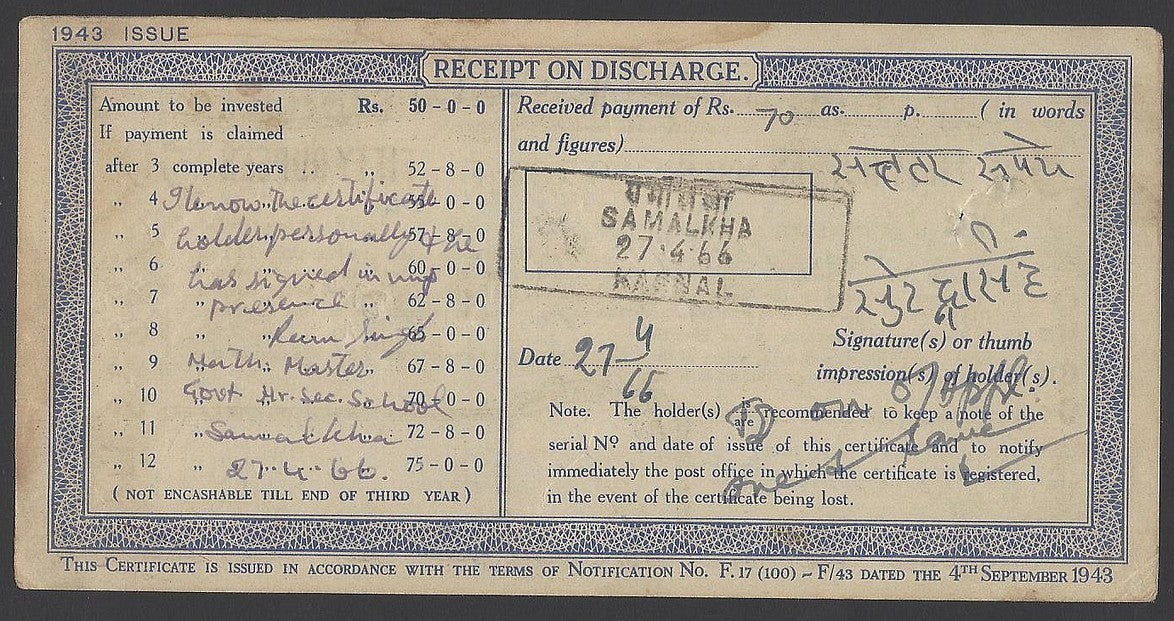 1943 ISSUE
RECEIPT ON DISCHARGE.
Amount to be invested Rs. 50-0-0
If payment is claimed
after 3 complete years .. „ 52-8-0
„ 4 „ „ 55-0-0
„ 5 „ „ 57-8-0
„ 6 „ „ 60-0-0
„ 7 „ „ 62-8-0
„ 8 „ „ 65-0-0
„ 9 „ „ 67-8-0
„ 10 „ „ 70-0-0
„ 11 „ „ 72-8-0
„ 12 „ „ 75-0-0
(NOT ENCASHABLE TILL END OF THIRD YEAR)
I know the certificate
holder personally & he
has signed in my
presence
Singh
Math. Master
Govt Hr. Sec. School
Samalkha
27.4.66.
Received payment of Rs. 70 as. p. (in words
and figures)
सत्तर रुपये
SAMALKHA
27·4·66
KARNAL
Signature(s) or thumb
impression(s) of holder(s).
Date 27 4 66
Note. The holder(s) is/are recommended to keep a note of the
serial Nº and date of issue of this certificate and to notify
immediately the post office in which the certificate is registered,
in the event of the certificate being lost.
THIS CERTIFICATE IS ISSUED IN ACCORDANCE WITH THE TERMS OF NOTIFICATION NO. F. 17 (100) - F/43 DATED THE 4TH SEPTEMBER 1943